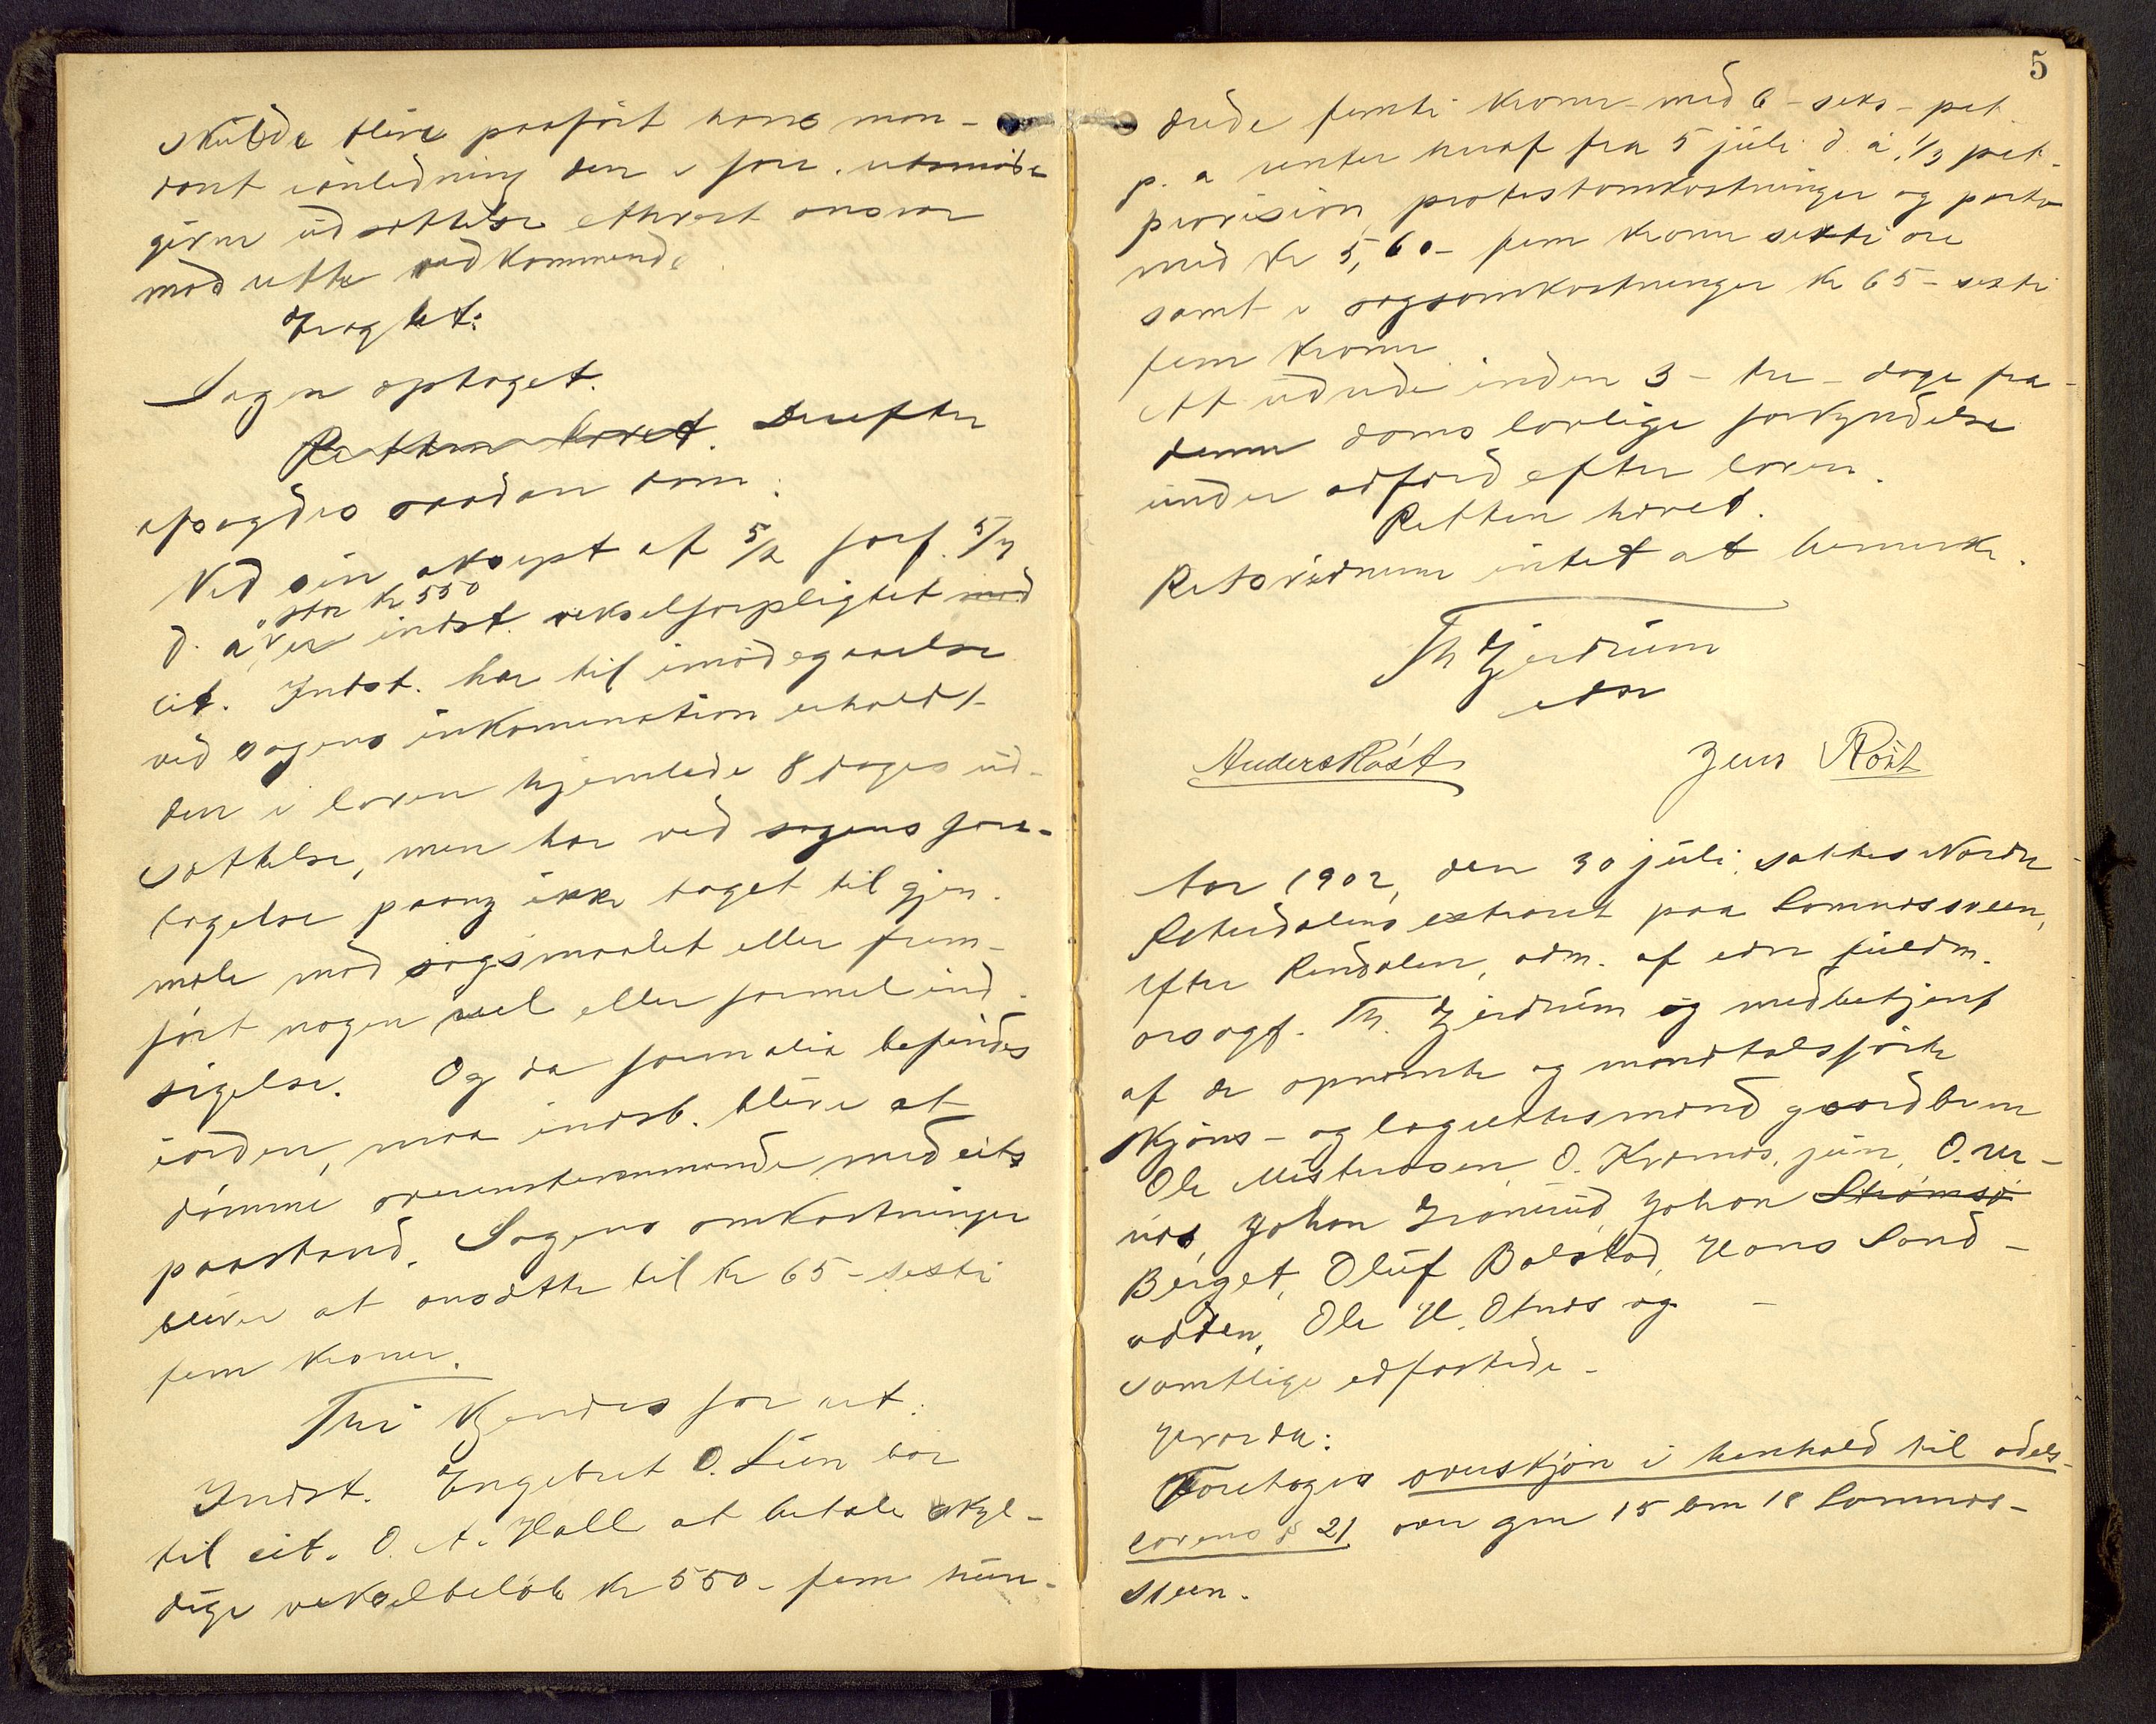 skulde blive paaført hans man-
dant i anledning den i forr.
given udsættelse ethvert ansvar
mod rette vedkommende.
Fragtet:
Sagen optaget.
Retten hævet. Derefter
afsagdes saadan dom:
Ved sin aksept af 5/2 forf. 5/7
stor kr 550
d. a. er indst. vekselforpligtet mod
cit. Indst. har til imødegaaelse
ved sagens inkamination erholdt
den i loven hjemlede 8 dages ud-
sættelse, men har ved sagens fore-
tagelse paany ikke taget til gjen-
mæle mod søgsmaalet eller frem-
ført nogen reel eller formel ind-
sigelse. Og da formalia befindes
iorden, maa indst. blive at
dømme overenstemmende med cits
paastand. Sagens omkostninger
bliver at ansætte til kr 65 - sexti
fem kroner.
Thi kjendes for ret:
Indst. Engebret O. Lien bør
til cit. O. A. Hall at betale skyl-
dige vekselbeløb kr 550 - fem hun-
5
drede femti kroner med 6 - seks - pct.
p. a renter heraf fra 5 juli d. a. 1/3 pct.
provision, protestomkostninger og porto
med kr 5,60 - fem kroner sexti øre
samt i sagsomkostninger kr 65 - sexti
fem kroner
At udrede inden 3 - tre - dage fra
denne doms lovlige forkyndelse
under adfærd efter loven.
Retten hævet.
Retsvidnerne intet at bemerke.
Th Gjerdrum
edsv
Anders Røst Jens Røst
Aar 1902, den 30 juli, sattes Nordre
Østerdalens extraret paa Lomnessveen,
Øfter Rendalen, adm. af edsv fuldm.
ansagf. Th. Gjerdrum og medbetjent
af de opnævnte og mandtalsførte
skjøns- og lagrettesmænd gaardbrukere
Ole Misterosen, O. Kværnes, jun, O. ver-
næs, Johan Grønerud, Johan Strømsø
Berget, Oluf Bolstad, Hans Sand-
odden, Ole H. Otnes og -
samtlige edfæstede -
Hvorda:
Foretoges overskjøn i henhold til odels-
lovens § 21 over gno 15 bno 18 Lomnes-
sveen.